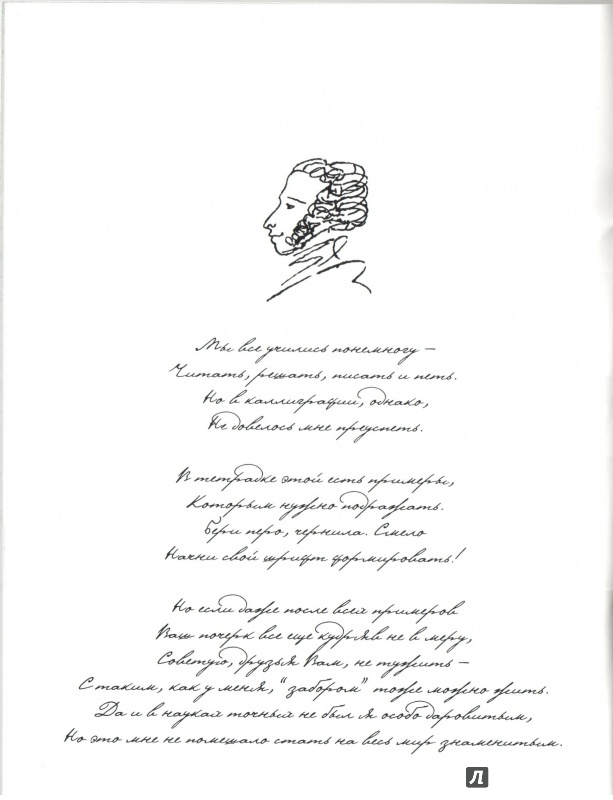 Мы все учились понемногу –
Читать, решать, писать и петь.
Но в каллиграфии, однако,
Не довелось мне преуспеть.
В тетрадке этой есть примеры,
Которым нужно подражать.
Бери перо, чернила. Смело
Начни свой шрифт формировать!
Но если даже после всей примеров
Ваш почерк все еще кудряв не в меру,
Советую, друзья Вам, не тужить –
С таким, как у меня, “забором” тоже можно жить.
Да и в наукай точный не был я особо даровитым,
Но это мне не помешало стать на весь мир знаменитым.
Л